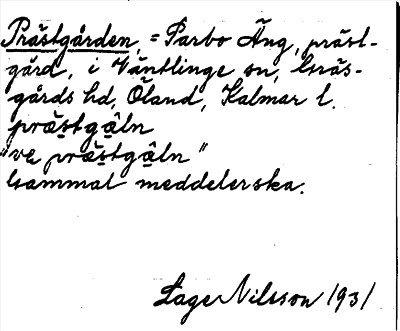 Prästgården, = Parbo Äng, präst-
gård, i Ventlinge sn, Gräs-
gårds hd, Öland, Kalmar l.
präs̲tgå̲ln
"ve präs̲tgå̲ln"
Gammal meddelerska.
Lage Nilsson 1931